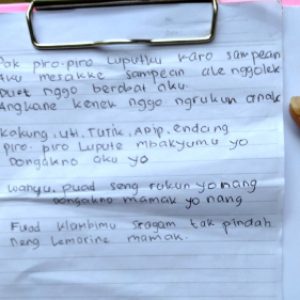 Pak piro-piro luputku karo sampean
Aku mesakke sampean ole nggolek
Duet nggo berobat aku.
Angkane kenek nggo ngrukun anak
Kakung, uti, Tutik, Adip, endang
piro-piro Lupute mbakyumu yo
Dongakno aku yo
wahyu, puad seng rukun yo nang
Dongakno mamak yo nang
Fuad klambimu sragam tak pindah
neng Lemarine mamak.